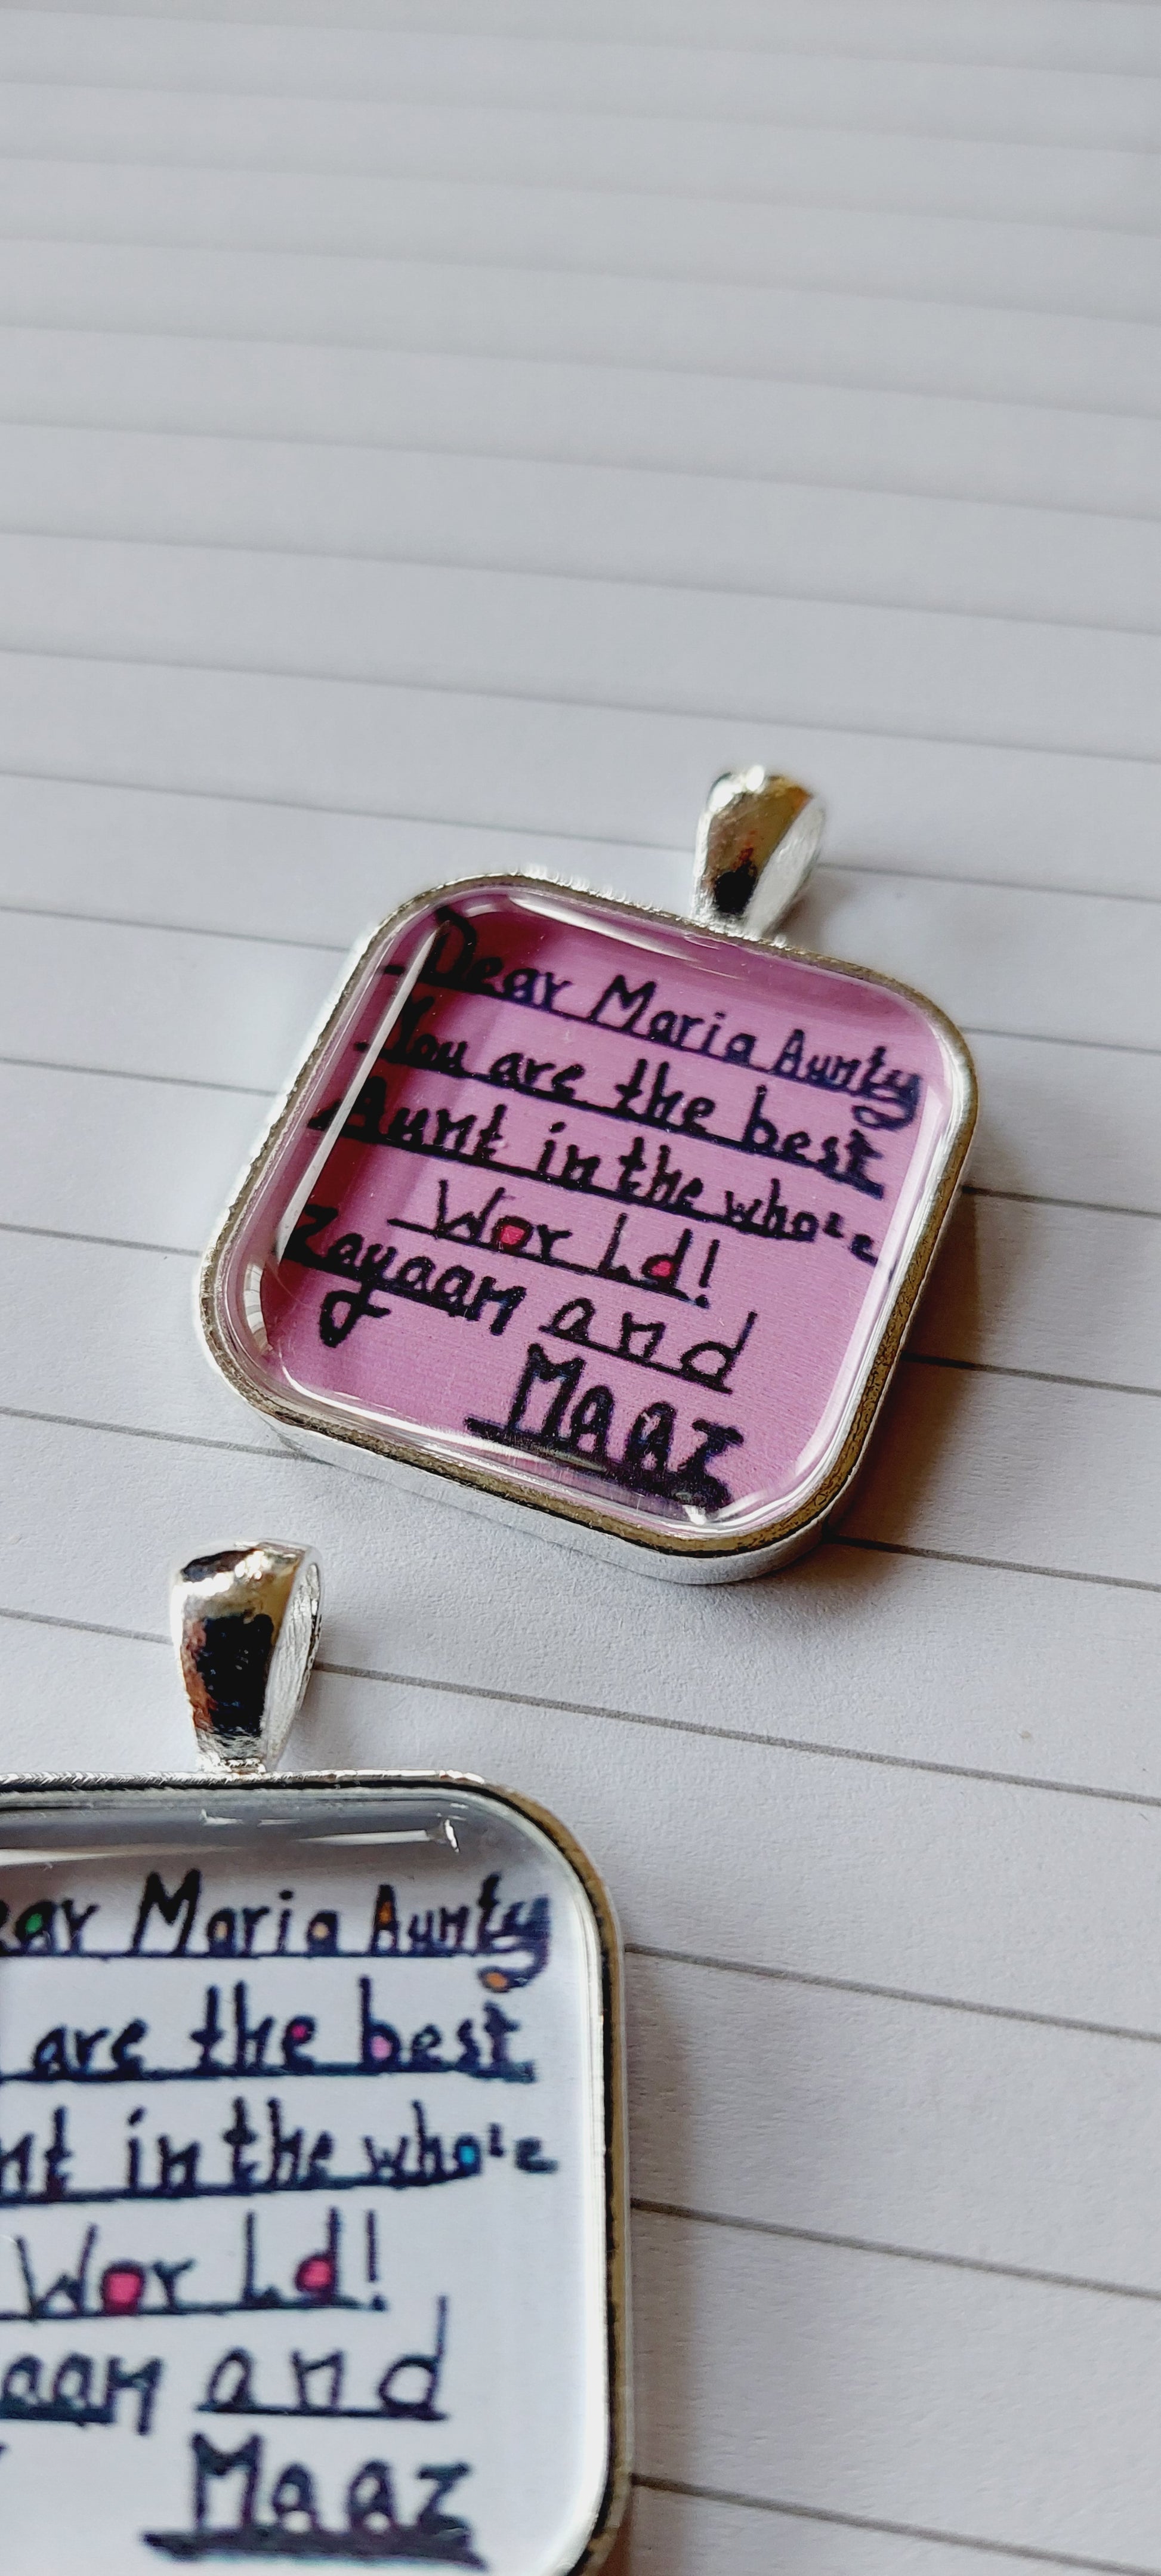 Dear Maria Aunty
You are the best
Aunt in the whole
World!
Zayaan and
Maaz
ear Maria Aunty
are the best
nt in the whole
World!
aan and
Maaz